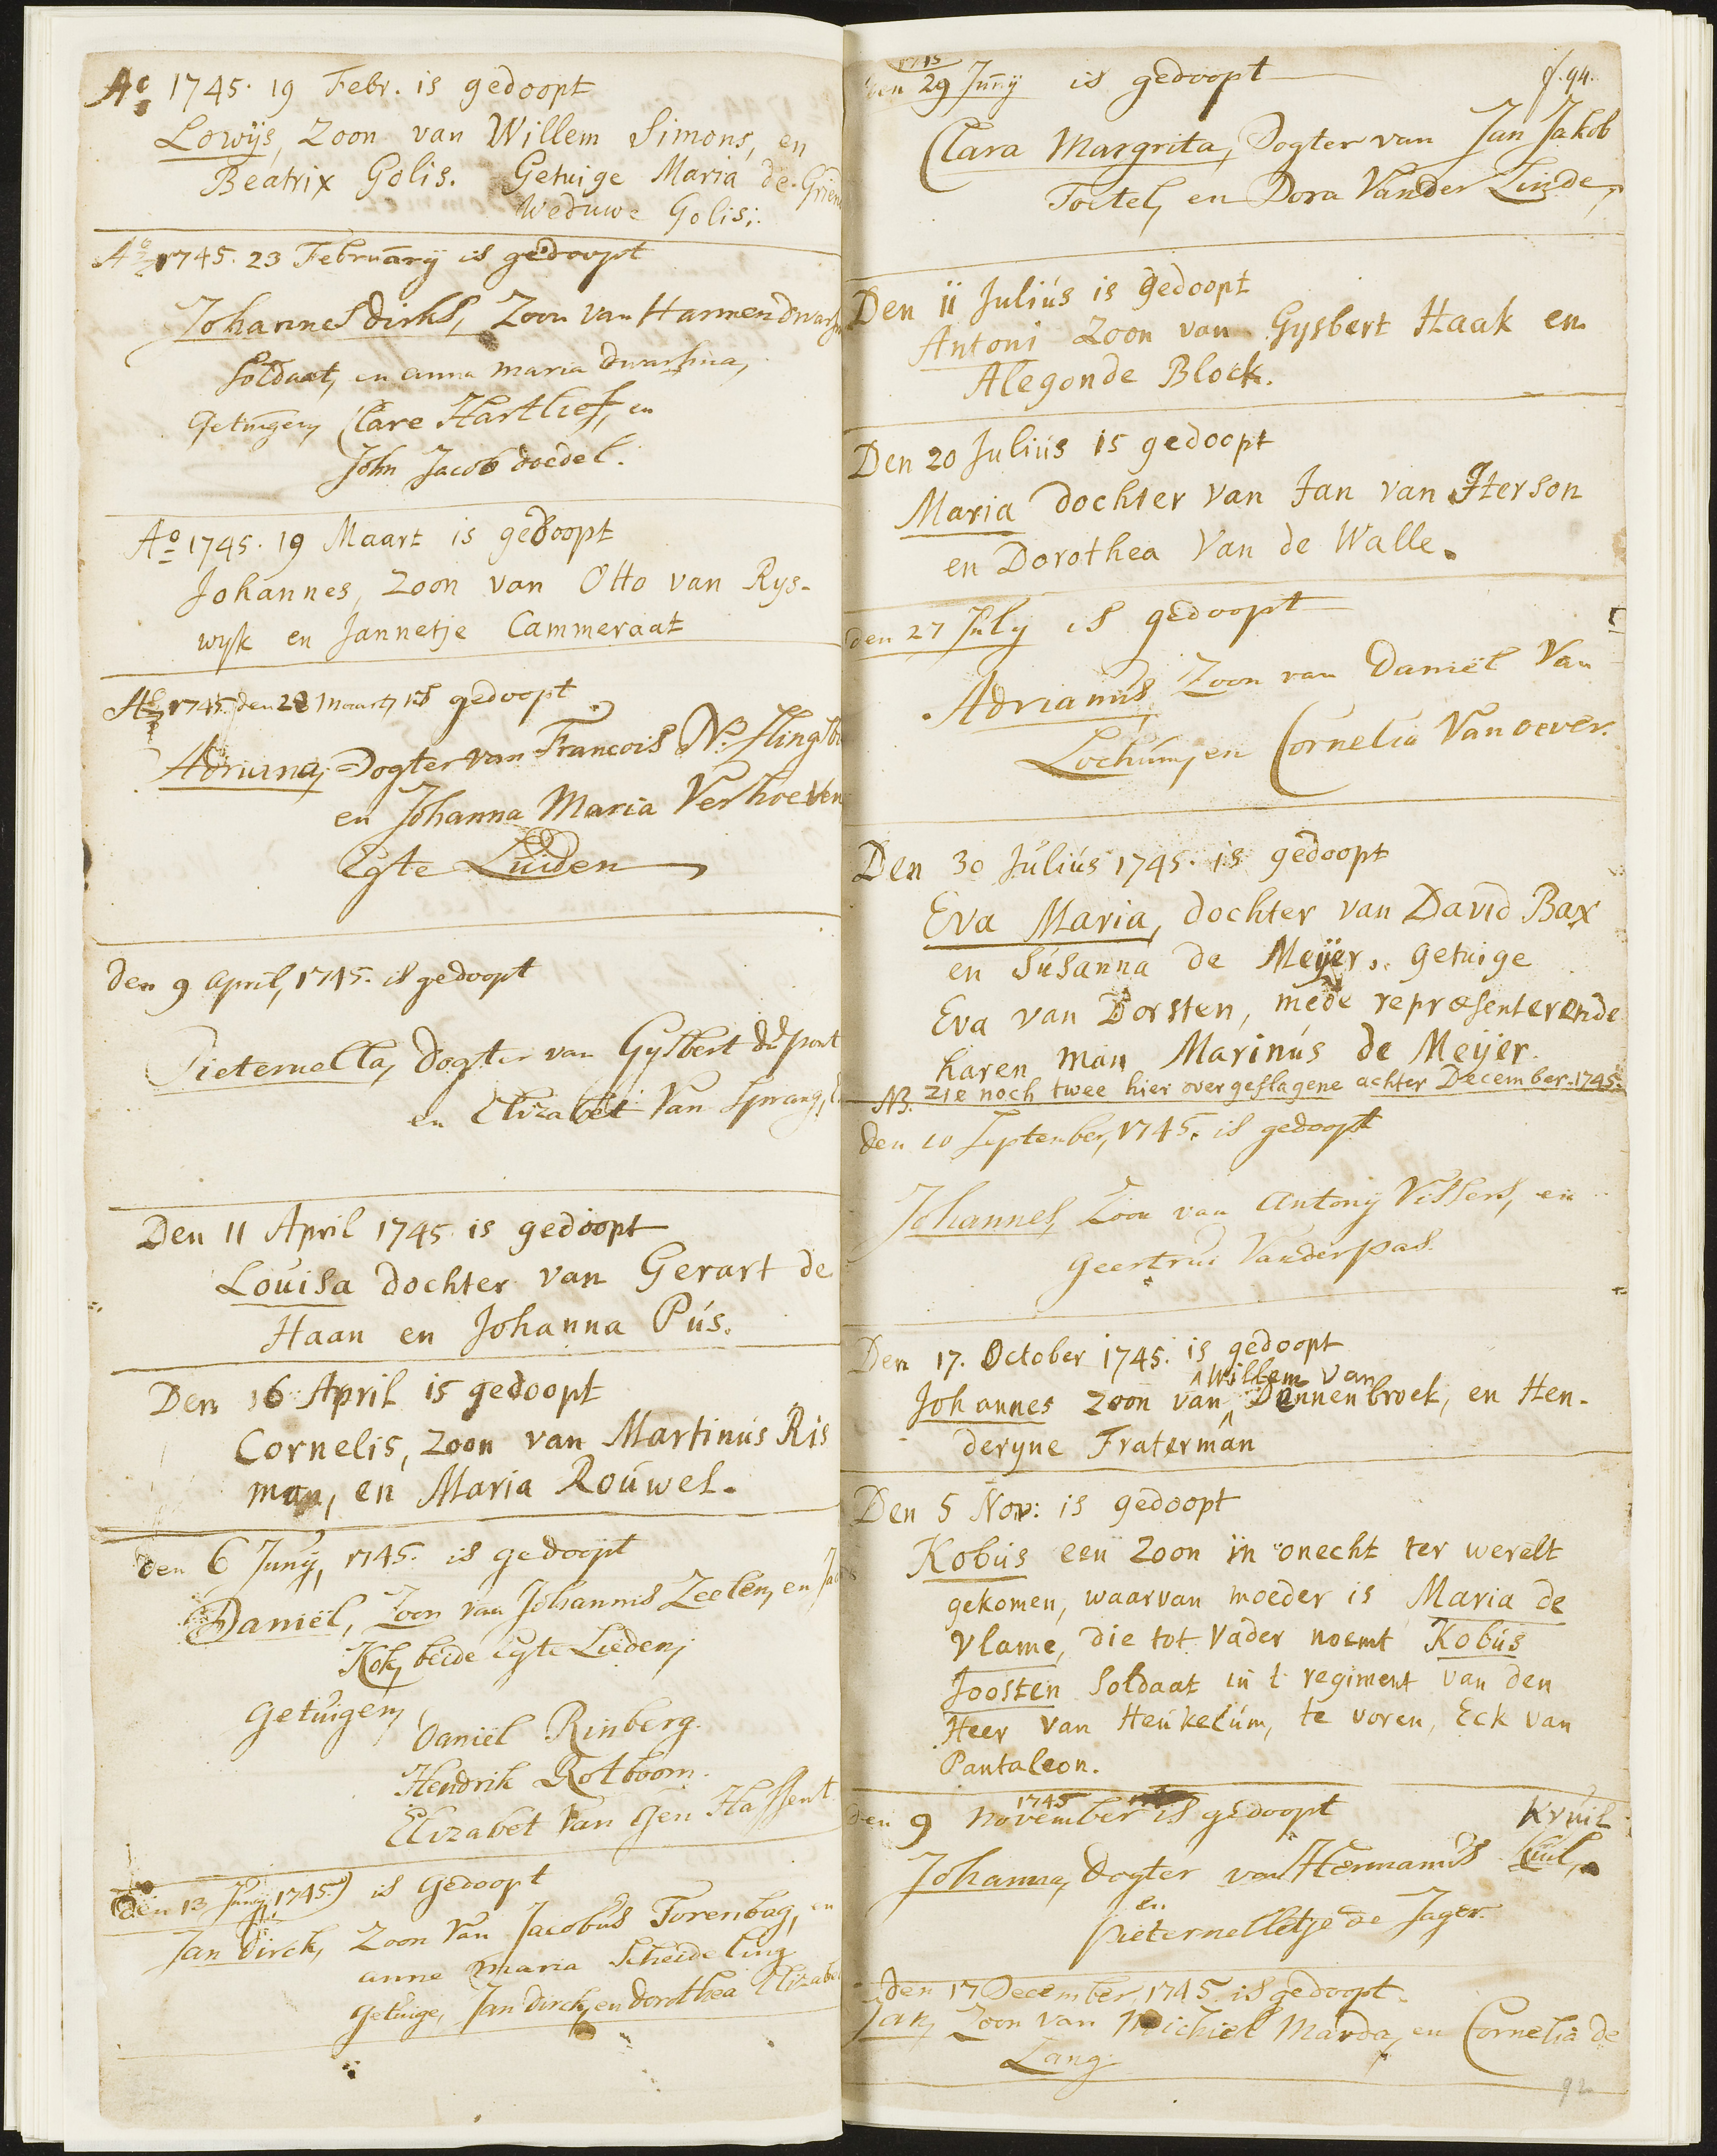 Ao 1745. 19 Febr. is gedoopt
Lowijs, Zoon van Willem Simons, en
Beatrix Golis. Getuige Maria de
Weduwe Golis.
Ao 1745. 23 February is gedoopt
Johannes dirks, Zoon van Harmen
Soldaat, en anna maria
Getuigen, Clare Hartlief, en
John Jacob doedel.
Ao 1745. 19 Maart is gedoopt
Johannes, Zoon van Otto van Rys-
wyk en Jannetje Cammeraat
Ao 1745. den 28 Maart, is gedoopt
Adriana, Dogter van Francois N.
en Johanna Maria Verhoeven
Egte Luiden
den 9 April, 1745. is gedoopt
Pieternella, dogter van Gysbert du pont
en Elizabet Van Sprang,
Den 11 April 1745 is gedoopt
Louisa dochter van Gerart de
Haan en Johanna Pús.
Den 16 April is gedoopt
Cornelis, zoon van Martinus Ris
man, en Maria Roúwel.
den 6 Juny, 1745. is gedoopt
Daniël, Zoon van Johannis Zeelen, en
Kok, beide Egte Lieden,
Getuigen,
Daniël Rinberg.
Hendrik Rotboom.
Elizabet Van den Hassent
den 13 Juny, 1745. is Gedoopt
Jan Dirck, Zoon Van Jacobus Torenbag, en
anne maria Scheideling
getuige, Jan dirck, en dorothea Elizabe
1745
den 29 Junij is gedoopt
f. 94.
Clara Margrita, Dogter van Jan Jakob
Toetel, en Dora Vander Linde,
Den 11 Julius is gedoopt
Antoni Zoon van Gysbert Haak en
Alegonde Block.
Den 20 Julius is gedoopt
Maria dochter van Jan van Iterson
en Dorothea Van de Walle.
den 27 July is gedoopt
Adrianus, Zoon van Daniël Van
Lochum, en Cornelia Van oever.
Den 30 Július 1745. is gedoopt
Eva Maria, dochter van David Bax
en Súsanna de Meijer. getuige
Eva van Dorsten, mede repræsenterende
haren man Marinús de Meijer.
NB. zie noch twee hier overgeslagene achter December. 1745.
den 10 September, 1745. is gedoopt
Johannes, Zoon van Antonij Vissers, en
geertrui Vanderpas.
Den 17. October 1745. is gedoopt
Willem van
Johannes zoon van Dennenbroek, en Hen-
deryne Fraterman
Den 5 Nov: is gedoopt
Kobus een Zoon in onecht ter werelt
gekomen, waarvan moeder is Maria de
Vlame, die tot Vader noemt Kobús
Joosten Soldaat in t regiment van den
Heer van Heukelúm, te voren, Eck van
Pantaleon.
1745
den 9 november is gedoopt
Kruil
Johanna, Dogter van Hermanus Kuil,
en
pieternelletje de Jager.
den 17 December, 1745. is gedoopt.
Jan, Zoon van Michiel Marda, en Cornelia de
Lang.
92